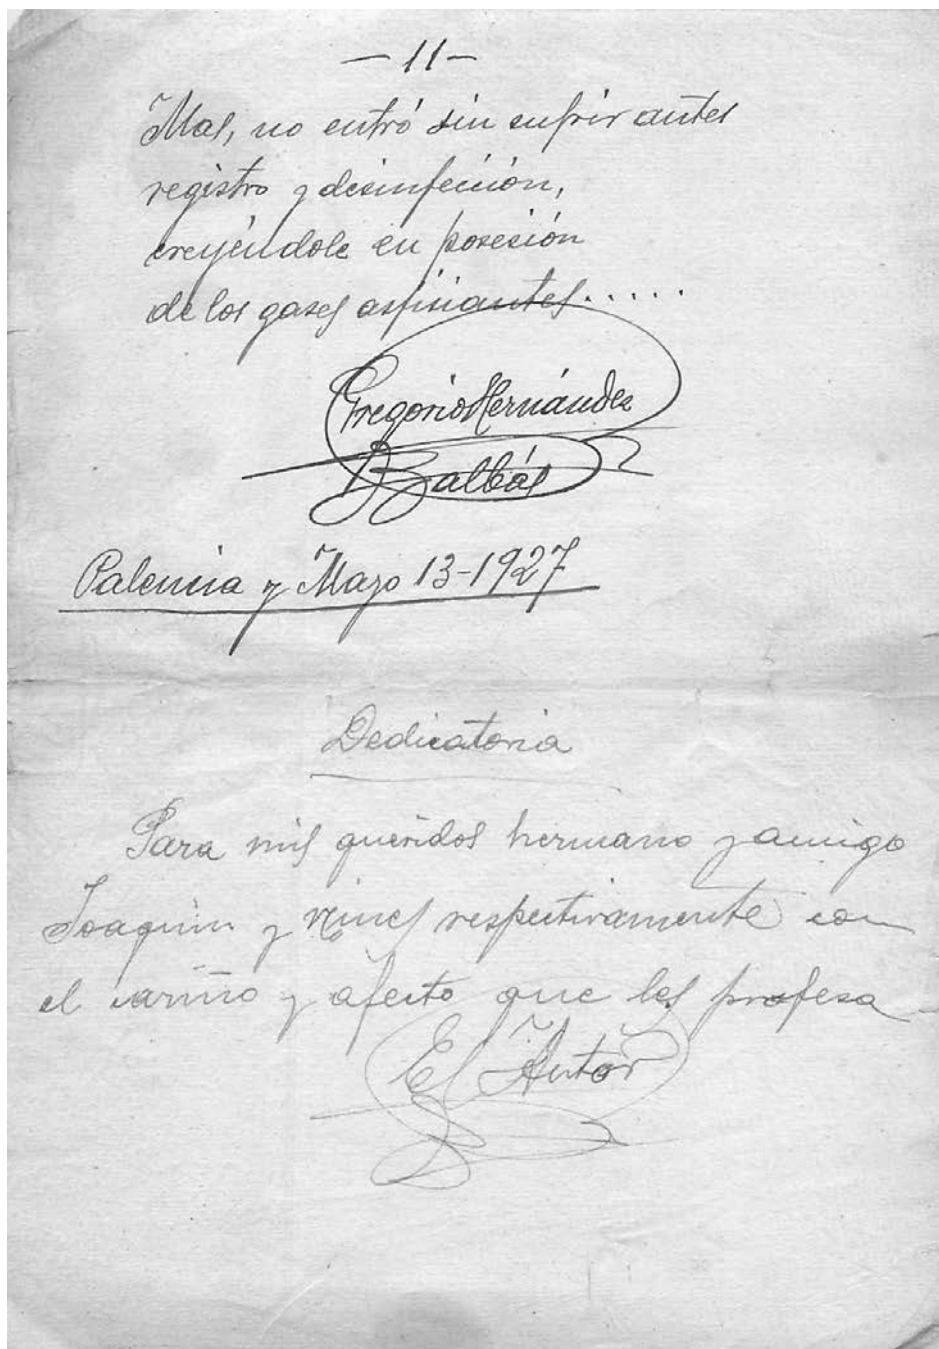 -11-
Mas, no entró sin sufrir antes
registro y desinfección,
creyéndole en posesión
de los gases asfixiantes.....
Gregorio Hernández
Balbás
Palencia y Mayo 13-1927
Dedicatoria
Para mis queridos hermano y amigo
Joaquín y respectivamente con
el cariño y afecto que les profesa
El Autor